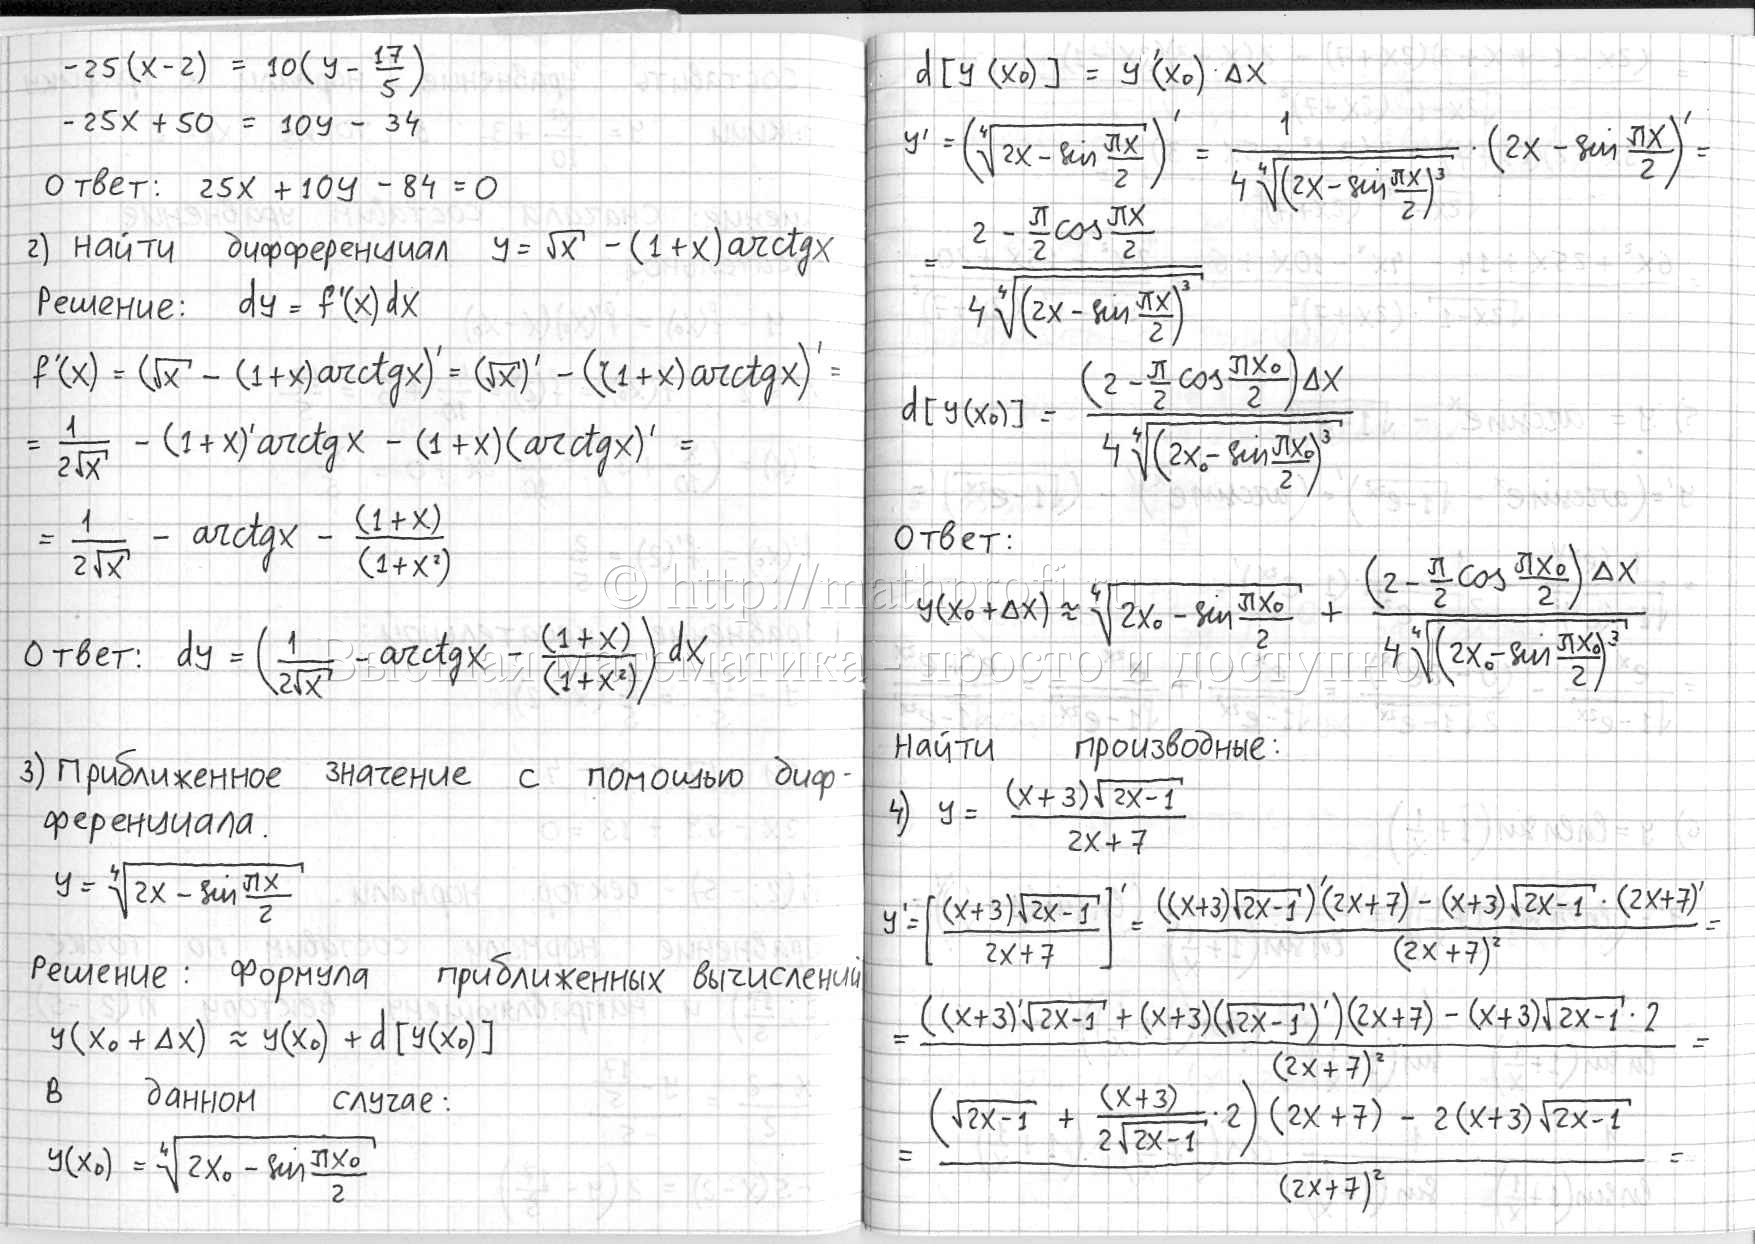 -25(x-2) = 10(y - 17/5)
-25x + 50 = 10y - 34
Ответ: 25x + 10y - 84 = 0
2) Найти дифференциал y = √x - (1+x)arctgx
Решение: dy = f'(x)dx
f'(x) = (√x - (1+x)arctgx)' = (√x)' - ((1+x)arctgx)' =
= 1/(2√x) - (1+x)'arctgx - (1+x)(arctgx)' =
= 1/(2√x) - arctgx - (1+x)/(1+x²)
Ответ: dy = (1/(2√x) - arctgx - (1+x)/(1+x²))dx
3) Приближенное значение с помощью диф-
ференциала.
y = ⁴√(2x - sin πx/2)
Решение: Формула приближенных вычислений
y(x₀ + Δx) ≈ y(x₀) + d[y(x₀)]
В данном случае:
y(x₀) = ⁴√(2x₀ - sin πx₀/2)
d[y(x₀)] = y'(x₀)·Δx
y' = (⁴√(2x - sin πx/2))' = 1/(4 ⁴√(2x - sin πx/2)³) · (2x - sin πx/2)' =
= (2 - π/2 cos πx/2)/(4 ⁴√(2x - sin πx/2)³)
d[y(x₀)] = (2 - π/2 cos πx₀/2)Δx/(4 ⁴√(2x₀ - sin πx₀/2)³)
Ответ:
y(x₀ + Δx) ≈ ⁴√(2x₀ - sin πx₀/2) + (2 - π/2 cos πx₀/2)Δx/(4 ⁴√(2x₀ - sin πx₀/2)³)
Найти производные:
4) y = (x+3)√(2x-1)/(2x+7)
y' = [(x+3)√(2x-1)/(2x+7)]' = (((x+3)√(2x-1))'(2x+7) - (x+3)√(2x-1)·(2x+7)')/(2x+7)² =
= (((x+3)'√(2x-1) + (x+3)(√(2x-1))')(2x+7) - (x+3)√(2x-1)·2)/(2x+7)² =
= ((√(2x-1) + (x+3)/(2√(2x-1))·2)(2x+7) - 2(x+3)√(2x-1))/(2x+7)² =
© http://mathprofi.ru
Высшая математика - просто и доступно